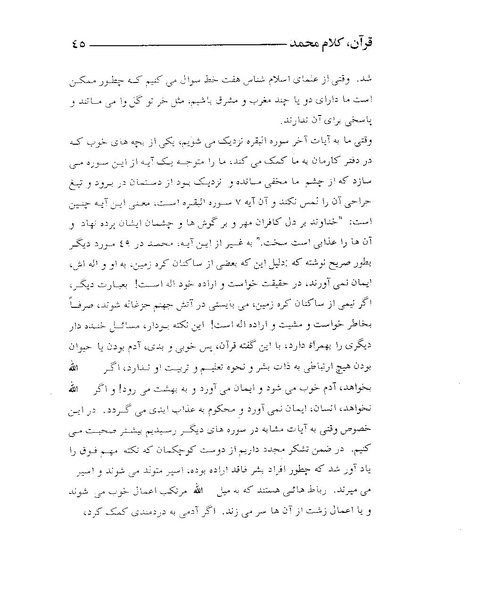 قرآن، کلام محمد ــــــــــــــــــــــــ ٤٥
شد. وقتی از علمای اسلام شناس هفت خط سوال می کنیم که چطور ممکن
است ما دارای دو یا چند مغرب و مشرق باشیم، مثل خر تو گل وا می مانند و
پاسخی برای آن ندارند.
وقتی ما به آیات آخر سوره البقره نزدیک می شویم، یکی از بچه های خوب که
در دفتر کارمان به ما کمک می کند، ما را متوجه یک آیه از این سوره می
سازد که از چشم ما مخفی مانده و نزدیک بود از دستمان در برود و تیغ
جراحی آن را لمس نکند و آن آیه ۷ سوره البقره است، معنی این آیه چنین
است: "خداوند بر دل کافران مهر و بر گوش ها و چشمان ایشان پرده نهاد و
آن ها را عذابی است سخت." به غیر از این آیه، محمد در ٤۹ مورد دیگر
بطور صریح نوشته که :دلیل این که بعضی از ساکنان کره زمین، به او و اله اش،
ایمان نمی آورند، در حقیقت خواست و اراده خود اله است! بعبارت دیگر،
اگر نیمی از ساکنان کره زمین، می بایستی در آتش جهنم جزغاله شوند، صرفاً
بخاطر خواست و مشیت و اراده اله است! این نکته بودار، مسائل خنده دار
دیگری را بهمراه دارد، با این گفته قرآن، پس خوبی و بدی، آدم بودن یا حیوان
بودن هیچ ارتباطی به ذات بشر و نحوه تعلیم و تربیت او ندارد، اگر الله
بخواهد، آدم خوب می شود و ایمان می آورد و به بهشت می رود! و اگر الله
نخواهد، انسان، ایمان نمی آورد و محکوم به عذاب ابدی می گردد. در این
خصوص وقتی به آیات مشابه در سوره های دیگر رسیدیم بیشتر صحبت می
کنیم. در ضمن تشکر مجدد داریم از دوست کوچکمان که نکته مهم فوق را
یاد آور شد که چطور افراد بشر فاقد اراده بوده، اسیر متولد می شوند و اسیر
می میرند. رباط هائی هستند که به میل الله مرتکب اعمال خوب می شوند
و یا اعمال زشت از آن ها سر می زند. اگر آدمی به دردمندی کمک کرد،